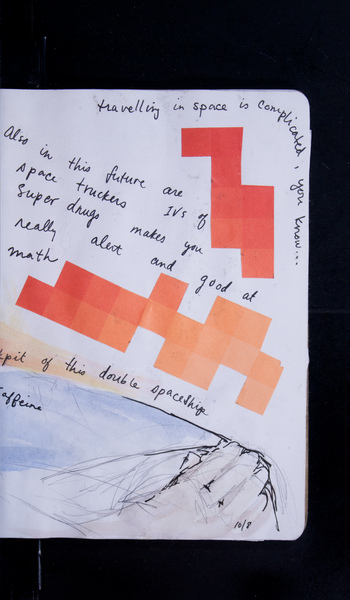 travelling in space is complicated, you know...
Also in this future are
space truckers IVs of
super drugs makes you
really alert and good at
math
pit of this double spaceship
affeine
10/8